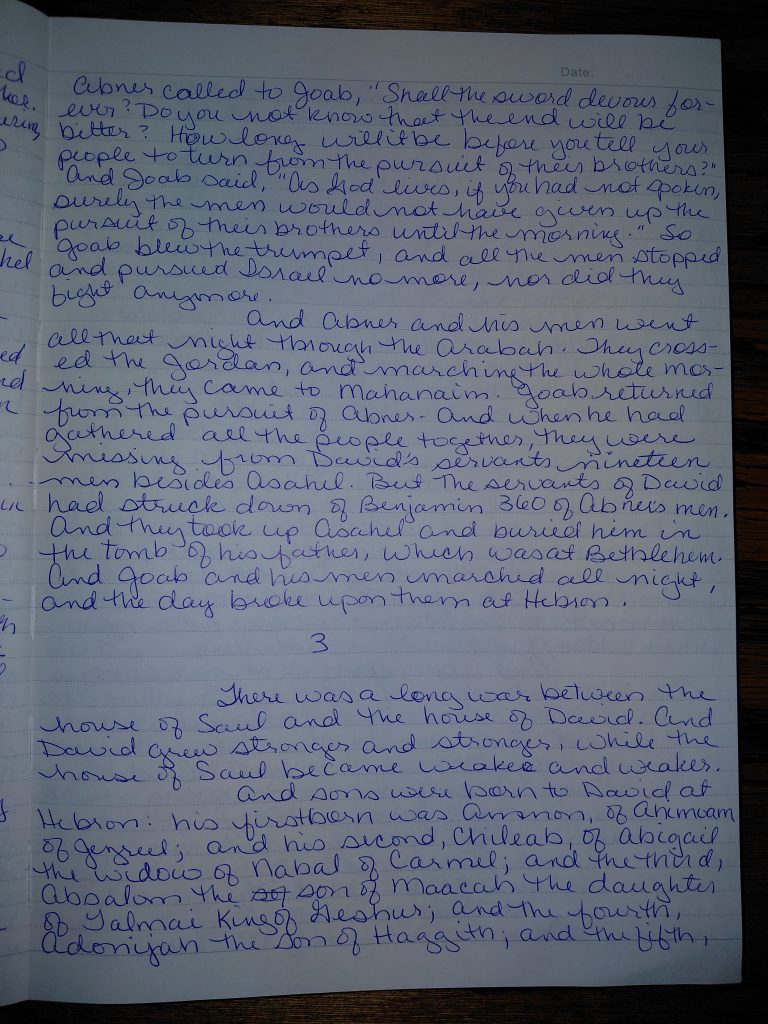 Date:
Abner called to Joab, "Shall the sword devour for-
ever? Do you not know that the end will be
bitter? How long will it be before you tell your
people to turn from the pursuit of their brothers?"
And Joab said, "As God lives, if you had not spoken,
surely the men would not have given up the
pursuit of their brothers until the morning." So
Joab blew the trumpet, and all the men stopped
and pursued Israel no more, nor did they
fight anymore.
And Abner and his men went
all that night through the Arabah. They cross-
ed the Jordan, and marching the whole mor-
ning, they came to Mahanaim. Joab returned
from the pursuit of Abner. And when he had
gathered all the people together, they were
missing from David's servants nineteen
men besides Asahel. But the servants of David
had struck down of Benjamin 360 of Abner's men.
And they took up Asahel and buried him in
the tomb of his father, which was at Bethlehem.
And Joab and his men marched all night,
and the day broke upon them at Hebron.
3
There was a long war between the
house of Saul and the house of David. And
David grew stronger and stronger, while the
house of Saul became weaker and weaker.
And sons were born to David at
Hebron: his firstborn was Amnon, of Ahinoam
of Jezreel; and his second, Chileab, of Abigail
the widow of Nabal of Carmel; and the third,
Absalom the son of Maacah the daughter
of Talmai King of Geshur; and the fourth,
Adonijah the son of Haggith; and the fifth,